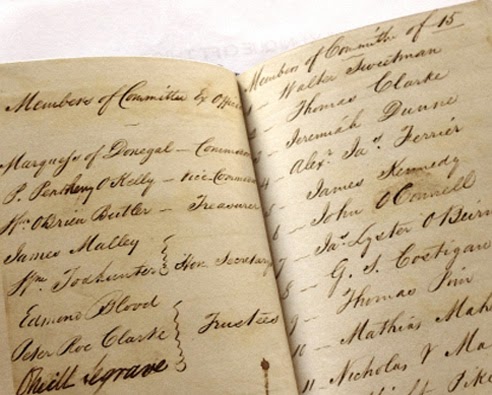 Members of Committee Ex Offici
Marquess of Donegal — Commodore
P. Pentheny O'Kelly — Vice-Commodore
Wm. O'Brien Butler — Treasurer
James Malley
Wm. Todhunter Hon. Secretary
Edmond Blood
Peter Roe Clarke Trustees
O'Neill Segrave
Members of Committee of 15
1 — Walter Sweetman
2 — Thomas Clarke
3 — Jeremiah Dunne
4 — Alexr. Jas. Ferrier
5 — James Kennedy
6 — John O'Connell
7 — Jas. Lyster O'Beirn
8 — G. S. Costigan
9 — Thomas
10 — Mathias Mah
11 — Nicholas V Ma
Pike